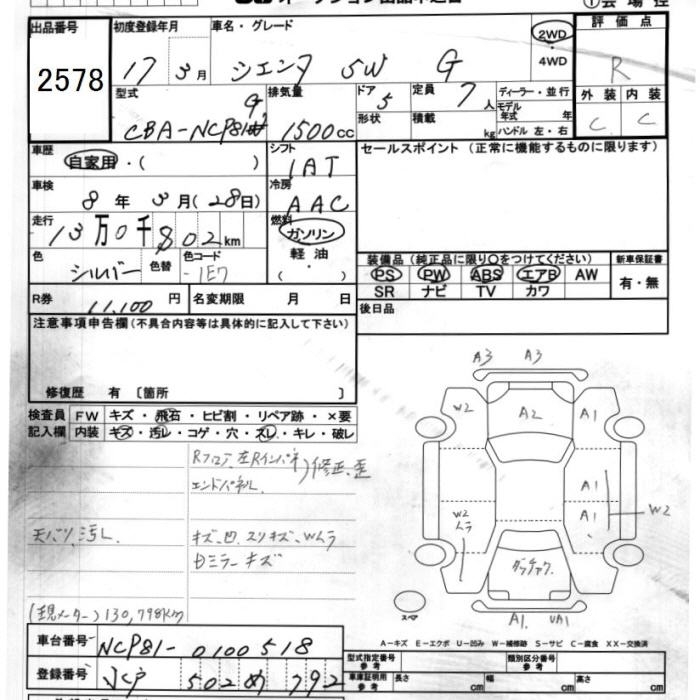 出品番号
2578
初度登録年月
17 3月
車名・グレード
シエンタ 5W G
2WD
・
4WD
評価点
R
型式
CBA-NCP81
排気量
1500cc
ドア
5
形状
定員
7人
積載
kg
ディーラー・並行
モデル年式 年
ハンドル 左・右
外装 内装
C C
車歴
自家用・( )
シフト
IAT
セールスポイント (正常に機能するものに限ります)
車検
8年 3月(28日)
冷房
AAC
走行
13万0千802km
燃料
ガソリン
軽油
( )
色
シルバー
色替
色コード
1E7
装備品 (純正品に限り○をつけてください)
PS PW ABS エアB AW
SR ナビ TV カワ
新車保証書
有・無
R券 11,100円
名変期限 月 日
後日品
注意事項申告欄(不具合内容等は具体的に記入して下さい)
修復歴 有 〔箇所 〕
検査員
記入欄
FW キズ・飛石・ヒビ割・リペア跡・×要
内装 キズ・汚レ・コゲ・穴・スレ・キレ・破レ
Rフロア 左Rインパネ 修正、歪
エンドパネル
天バリ、汚レ
キズ、凹、スリキズ、Wムラ
ドミラーキズ
(現メーター) 130,798km
A3 A3
W2 A2 A1
W2
ムラ
A1
A1
W2
ダッチャク
スペア
A1. UA1
A-キズ E-エクボ U-凹み W-補修跡 S-サビ C-腐食 XX-交換済
車台番号
NCP81-0100518
登録番号
502 792
型式指定番号
参考
類別区分番号
参考
車庫証明用
参考
長さ cm
幅 cm
高さ cm